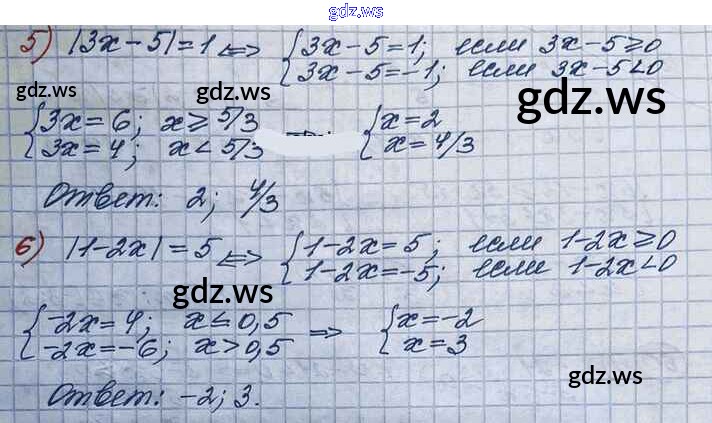 gdz.ws
5) |3x-5|=1 <=> { 3x-5=1; если 3x-5≥0
3x-5=-1; если 3x-5<0
gdz.ws gdz.ws gdz.ws
{ 3x=6; x≥5/3 { x=2
3x=4; x<5/3 x=4/3
Ответ: 2; 4/3
6) |1-2x|=5 <=> { 1-2x=5; если 1-2x≥0
1-2x=-5; если 1-2x<0
gdz.ws
{ -2x=4; x≤0,5 => { x=-2
-2x=-6; x>0,5 x=3
gdz.ws
Ответ: -2; 3.